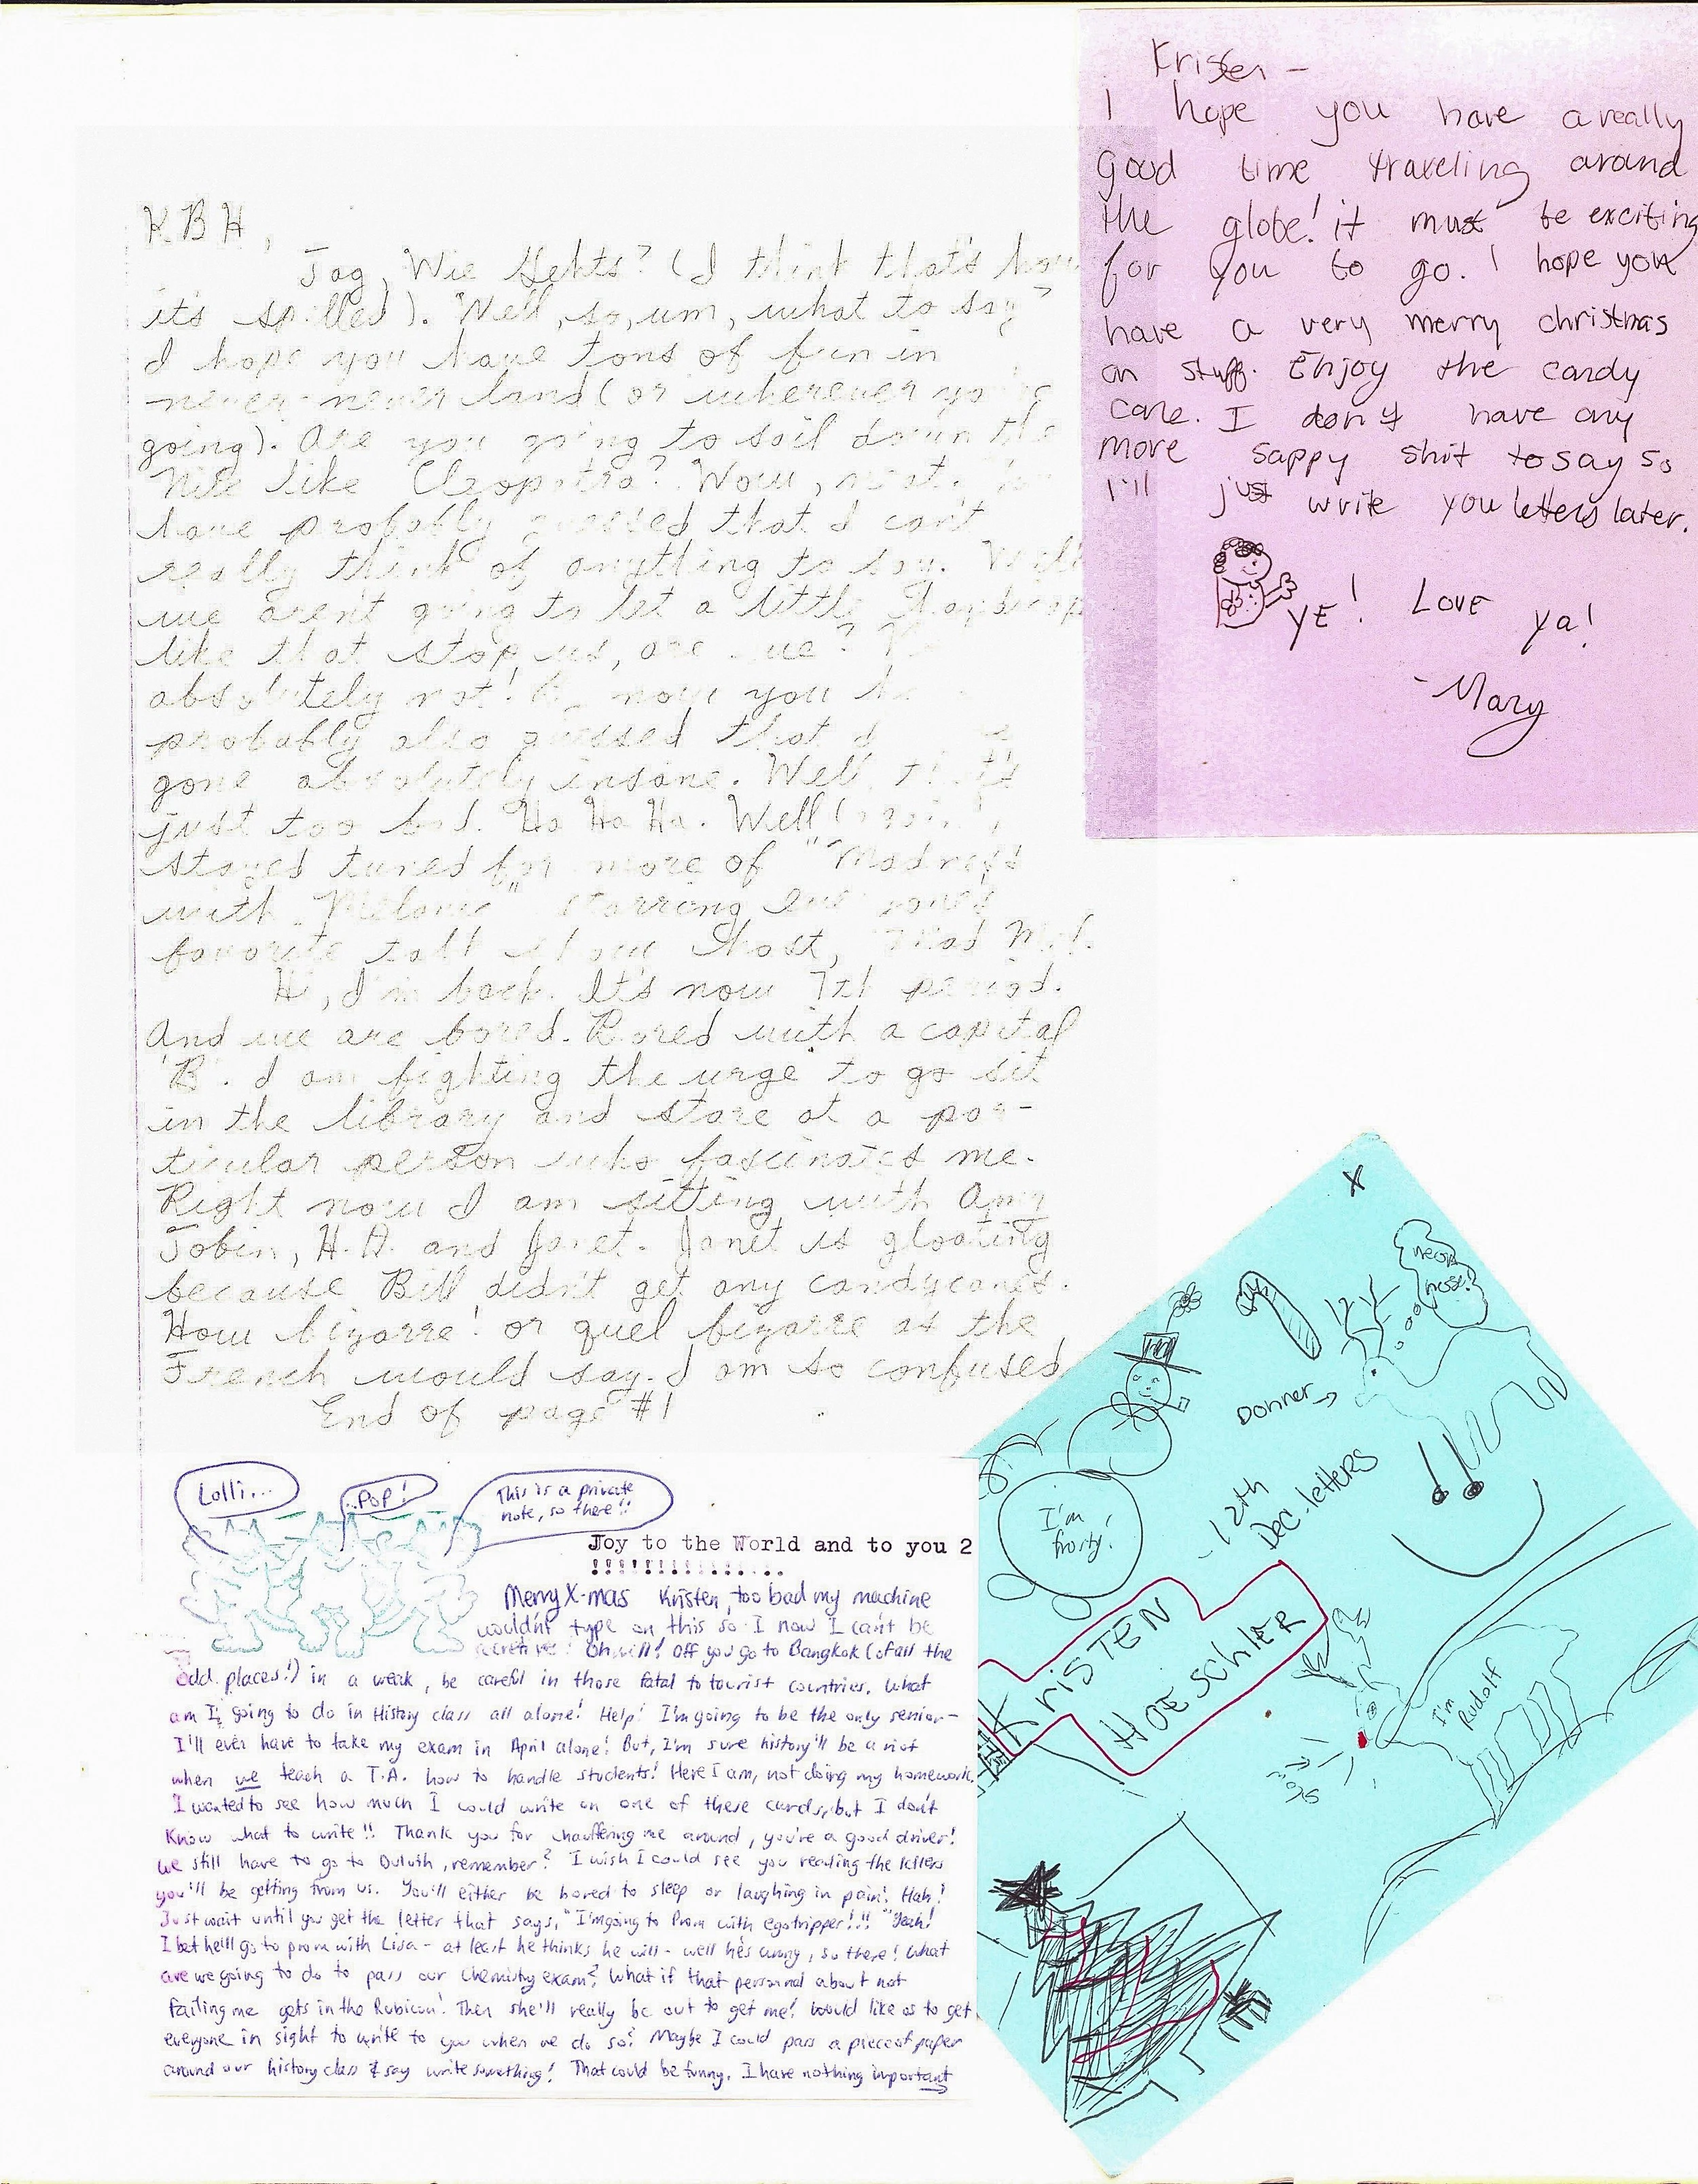 K.B.H,
Tag, Wie Gehts? (I think that's how
it's spelled). Well, so, um, what to say?
I hope you have tons of fun in
never-never land (or wherever you're
going). Are you going to sail down the
Nile like Cleopatra? Wow, neat. You
have probably guessed that I can't
really think of anything to say. Well
we aren't going to let a little handicap
like that stop us, are we?
absolutely not! now you
probably also guessed that I
gone absolutely insane. Well, that's
just too bad. Ha Ha Ha. Well (again),
stayed tuned for more of "Madness
with Melanie" starring
favorite talk show host, Mad Mel.
Hi, I'm back. It's now 7th period.
And we are bored. Bored with a capital
'B'. I am fighting the urge to go sit
in the library and stare at a par-
ticular person who fascinates me.
Right now I am sitting with Amy
Tobin, H.A. and Janet. Janet is gloating
because Bill didn't get any candycanes.
How bizarre! or quel bizarre as the
French would say. I am so confused
End of page #1
Kristen -
I hope you have a really
Good time traveling around
the globe! it must be exciting
for you to go. I hope you
have a very merry christmas
an stuff. Enjoy the candy
cane. I don't have any
more sappy shit to say so
I'll just write you letters later.
YE! Love ya!
-Mary
Lolli...
..Pop!
This is a private
note, so there!!
Joy to the World and to you 2
!!!!!!!!!!!!!!!
Merry X-mas Kristen, too bad my machine
wouldn't type on this so I now I can't be
secretive! Oh well! Off you go to Bangkok (of all the
odd places!) in a week, be careful in those fatal to tourist countries. What
am I going to do in History class all alone! Help! I'm going to be the only senior-
I'll even have to take my exam in April alone! But, I'm sure history'll be a riot
when we teach a T.A. how to handle students! Here I am, not doing my homework.
I wanted to see how much I could write on one of these cards, but I don't
know what to write!! Thank you for chauffering me around, you're a good driver!
We still have to go to Duluth, remember? I wish I could see you reading the letters
you'll be getting from us. You'll either be bored to sleep or laughing in pain! Hah!
Just wait until you get the letter that says, "I'm going to Prom with egotripper!!!" "Yeah!
I bet he'll go to prom with Lisa - at least he thinks he will - well he's wrong, so there! What
are we going to do to pass our chemistry exam? What if that personal about not
failing me gets in the Rubicon! Then she'll really be out to get me! Would like us to get
everyone in sight to write to you when we do so? Maybe I could pass a piece of paper
around our history class & say write something! That could be funny. I have nothing important
X
neon
nose!
Donner →
I'm
frosty!
-12th
Dec. letters
KRISTEN
HOESCHLER
I'm
Rudolf